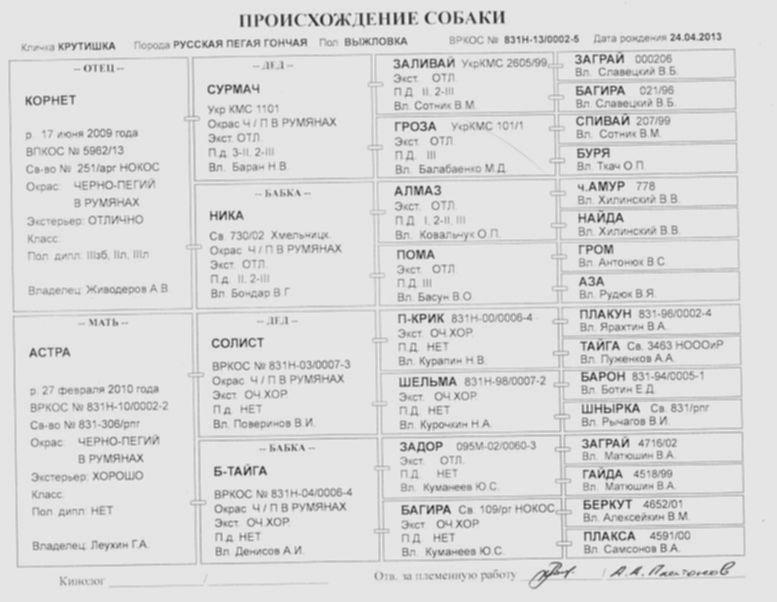 ПРОИСХОЖДЕНИЕ СОБАКИ
Кличка КРУТИШКА Порода РУССКАЯ ПЕГАЯ ГОНЧАЯ Пол ВЫЖЛОВКА ВРКОС № 831Н-13/0002-5 Дата рождения 24.04.2013
-- ОТЕЦ --
КОРНЕТ
р. 17 июня 2009 года
ВПКОС № 5962/13
Св-во № 251/арг НОКОС
Окрас: ЧЕРНО-ПЕГИЙ
В РУМЯНАХ
Экстерьер: ОТЛИЧНО
Класс:
Пол. дипл: IIIзб, IIл, IIIл
Владелец: Живодеров А.В.
-- МАТЬ --
АСТРА
р. 27 февраля 2010 года
ВРКОС № 831Н-10/0002-2
Св-во № 831-306/рпг
Окрас: ЧЕРНО-ПЕГИЙ
В РУМЯНАХ
Экстерьер: ХОРОШО
Класс:
Пол. дипл: НЕТ
Владелец: Леухин Г.А.
-- ДЕД --
СУРМАЧ
Укр КМС 1101
Окрас Ч / П В РУМЯНАХ
Экст. ОТЛ.
П.д. 3-II, 2-III
Вл. Баран Н.В.
-- БАБКА --
НИКА
Св. 730/02 Хмельницк.
Окрас Ч / П В РУМЯНАХ
Экст. ОТЛ.
П.д. II, 2-III
Вл. Бондар В.Г.
-- ДЕД --
СОЛИСТ
ВРКОС № 831Н-03/0007-3
Окрас Ч / П В РУМЯНАХ
Экст. ОЧ.ХОР.
П.д. НЕТ
Вл. Поверинов В.И.
-- БАБКА --
Б-ТАЙГА
ВРКОС № 831Н-04/0006-4
Окрас Ч / П В РУМЯНАХ
Экст. ОЧ.ХОР.
П.д. НЕТ
Вл. Денисов А.И.
ЗАЛИВАЙ УкрКМС 2605/99
Экст. ОТЛ.
П.Д. II, 2-III
Вл. Сотник В.М.
ГРОЗА УкрКМС 101/1
Экст. ОТЛ.
П.Д. III
Вл. Балабаенко М.Д.
АЛМАЗ
Экст. ОТЛ.
П.Д. I, 2-II, III
Вл. Ковальчук О.П.
ПОМА
Экст. ОТЛ.
П.Д. III
Вл. Басун В.О.
П-КРИК 831Н-00/0006-4
Экст. ОЧ.ХОР.
П.Д. НЕТ
Вл. Курапин Н.В.
ШЕЛЬМА 831Н-98/0007-2
Экст. ОЧ.ХОР.
П.Д. НЕТ
Вл. Курочкин Н.А.
ЗАДОР 095М-02/0060-3
Экст. ОТЛ.
П.Д. НЕТ
Вл. Куманеев Ю.С.
БАГИРА Св. 109/рг НОКОС
Экст. ОЧ.ХОР.
П.Д. НЕТ
Вл. Куманеев Ю.С.
ЗАГРАЙ 000206
Вл. Славецкий В.Б.
БАГИРА 021/96
Вл. Славецкий В.Б.
СПИВАЙ 207/99
Вл. Сотник В.М.
БУРЯ
Вл. Ткач О.П.
ч.АМУР 778
Вл. Хилинский В.В.
НАЙДА
Вл. Хилинский В.В.
ГРОМ
Вл. Антонюк В.С.
АЗА
Вл. Рудюк В.Я.
ПЛАКУН 831-96/0002-4
Вл. Ярахтин В.А.
ТАЙГА Св. 3463 НОООиР
Вл. Пуженков А.А.
БАРОН 831-94/0005-1
Вл. Ботин Е.Д.
ШНЫРКА Св. 831/рпг
Вл. Рычагов В.И.
ЗАГРАЙ 4716/02
Вл. Матюшин В.А.
ГАЙДА 4518/99
Вл. Матюшин В.А.
БЕРКУТ 4652/01
Вл. Алексейкин В.М.
ПЛАКСА 4591/00
Вл. Самсонов В.А.
Кинолог / Отв. за племенную работу / А.А. Платонов